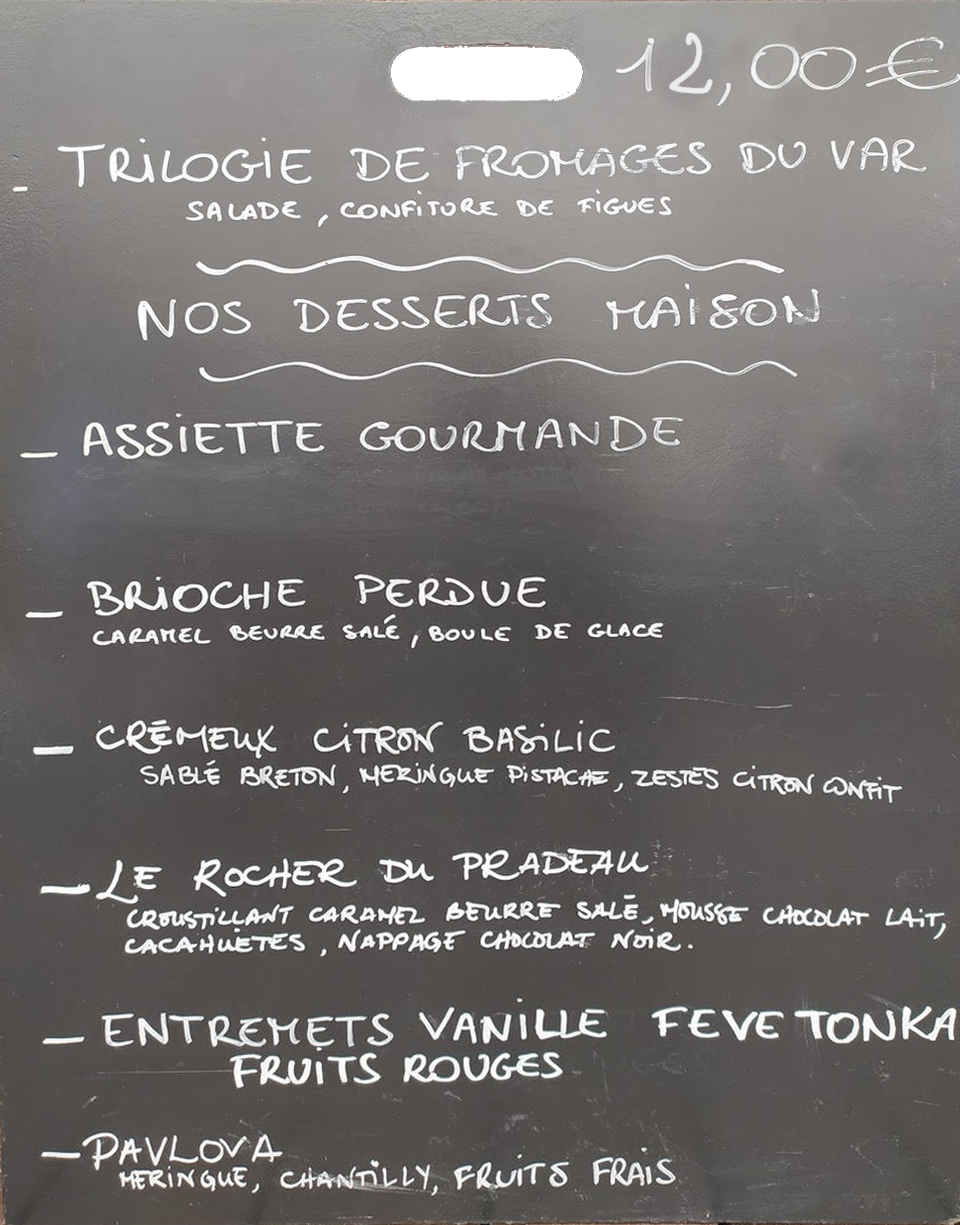 12,00€
- TRILOGIE DE FROMAGES DU VAR
SALADE, CONFITURE DE FIGUES
NOS DESSERTS MAISON
- ASSIETTE GOURMANDE
- BRIOCHE PERDUE
CARAMEL BEURRE SALÉ, BOULE DE GLACE
- CRÉMEUX CITRON BASILIC
SABLÉ BRETON, MERINGUE PISTACHE, ZESTES CITRON CONFIT
- LE ROCHER DU PRADEAU
CROUSTILLANT CARAMEL BEURRE SALÉ, MOUSSE CHOCOLAT LAIT,
CACAHUETES, NAPPAGE CHOCOLAT NOIR.
- ENTREMETS VANILLE FEVE TONKA
FRUITS ROUGES
- PAVLOVA
MERINGUE, CHANTILLY, FRUITS FRAIS